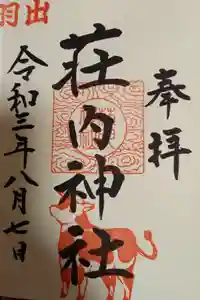 奉拝
荘内神社
令和三年八月七日
出羽